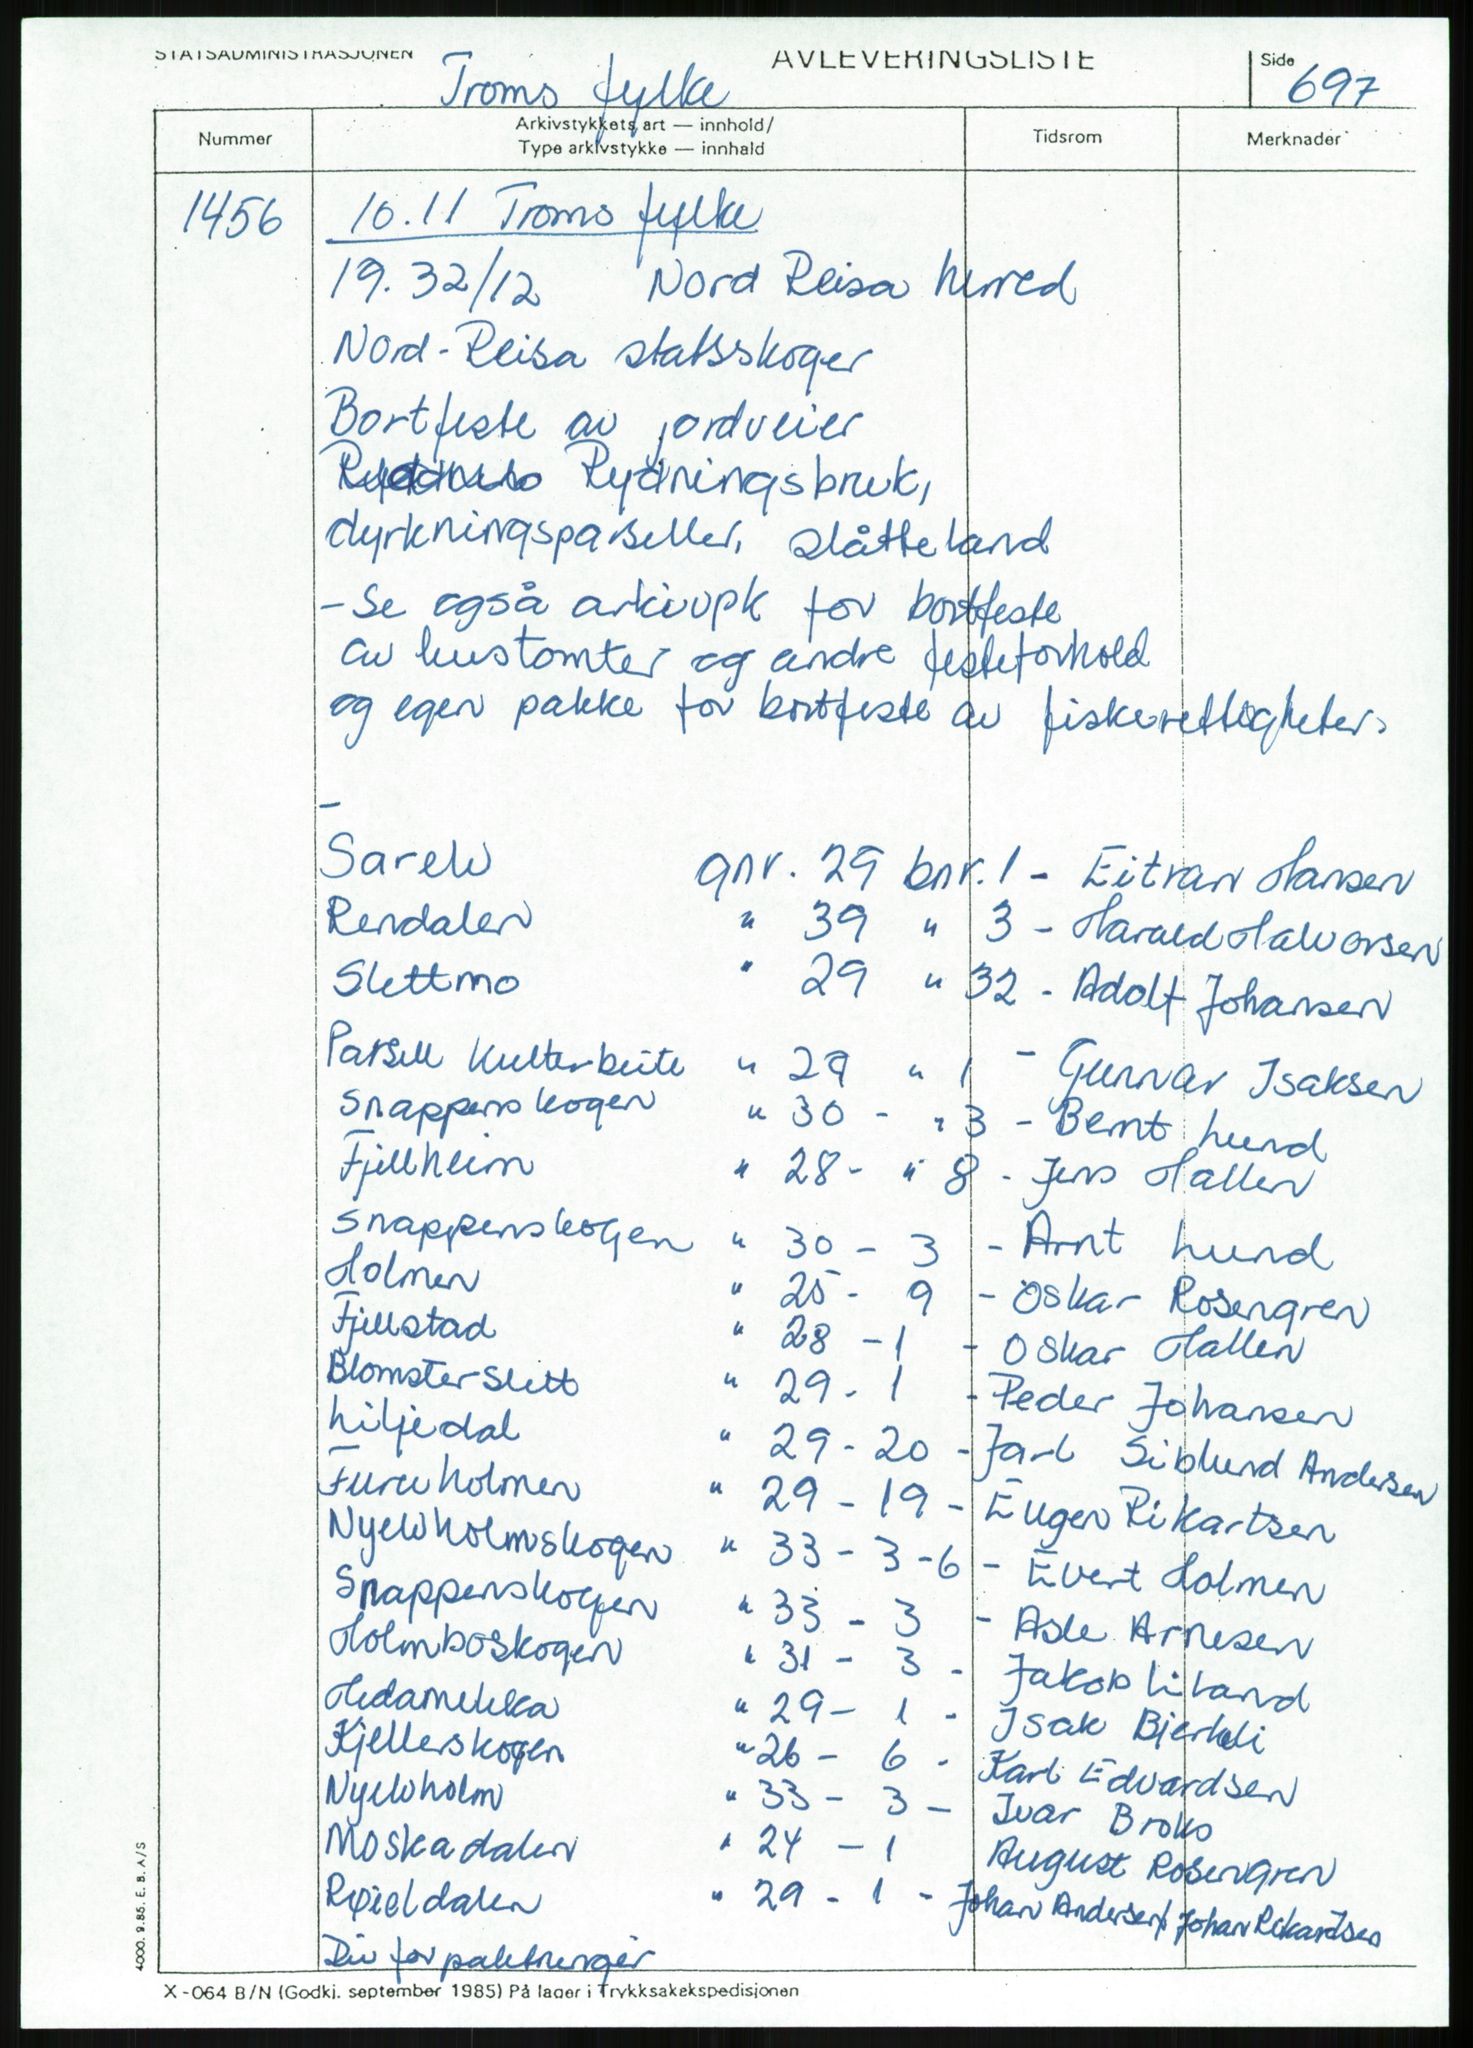 STATSADMINISTRASJONEN AVLEVERINGSLISTE Side
Troms fylke 697
Nummer Arkivstykkets art — innhold/ Tidsrom Merknader
Type arkivstykke — innhald
1456 10.11 Troms fylke
19.32/12 Nord Reisa herred
Nord-Reisa statsskoger
Bortfeste av jordveier
Rydningsbruk,
dyrkningsparseller, slåtteland
- Se også arkivpk for bortfeste
av hustomter og andre festeforhold
og egen pakke for bortfeste av fiskerettigheter.
-
Sarelv gnr. 29 bnr. 1 - Eitran Hansen
Rendalen " 39 " 3 - Harald Halvorsen
Slettmo " 29 " 32 - Adolf Johansen
Parsell Kulturbeite " 29 " 1 - Gunnar Isaksen
Snappenskogen " 30 - " 3 - Bernt Lund
Fjellheim " 28 - " 8 - Jens Hallen
Snappenskogen " 30 - 3 - Arnt Lund
Holmen " 25 - 9 - Oskar Rosengren
Fjellstad " 28 - 1 - Oskar Hallen
Blomsterslett " 29 - 1 - Peder Johansen
Liljedal " 29 - 20 - Jarl Siblund Andersen
Furuholmen " 29 - 19 - Eugen Rikartsen
Nyelvholmskogen " 33 - 3-6 - Evert Holmen
Snappenskogen " 33 - 3 - Asle Arnesen
Holmboskogen " 31 - 3 - Jakob Liland
" 29 - 1 - Isak Bjerkli
Kjellerskogen " 26 - 6 - Karl Edvardsen
Nyelvholm " 33 - 3 - Ivar Broks
Moskadalen " 24 - 1 August Rosengren
Røieldalen " 29 - 1 - Johan Andersen/Johan Rikardsen
Div forpaktninger
X-064 B/N (Godkj. september 1985) På lager i Trykksakekspedisjonen
4000. 9.85. E. B. A/S